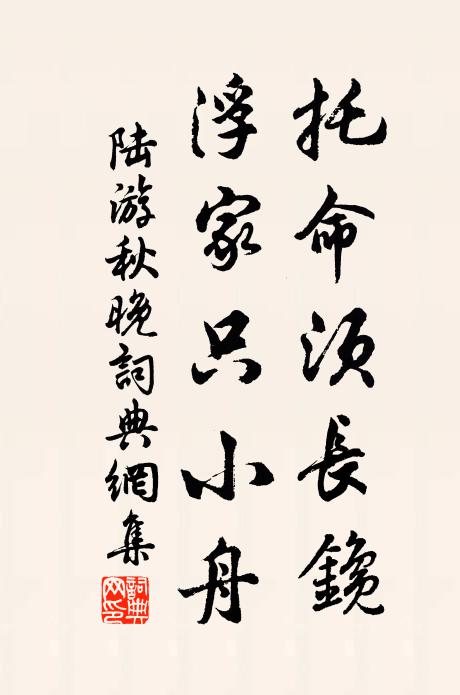 托命须長鑱
浮家只小舟
陆游秋晚詞典網集
詞典網印